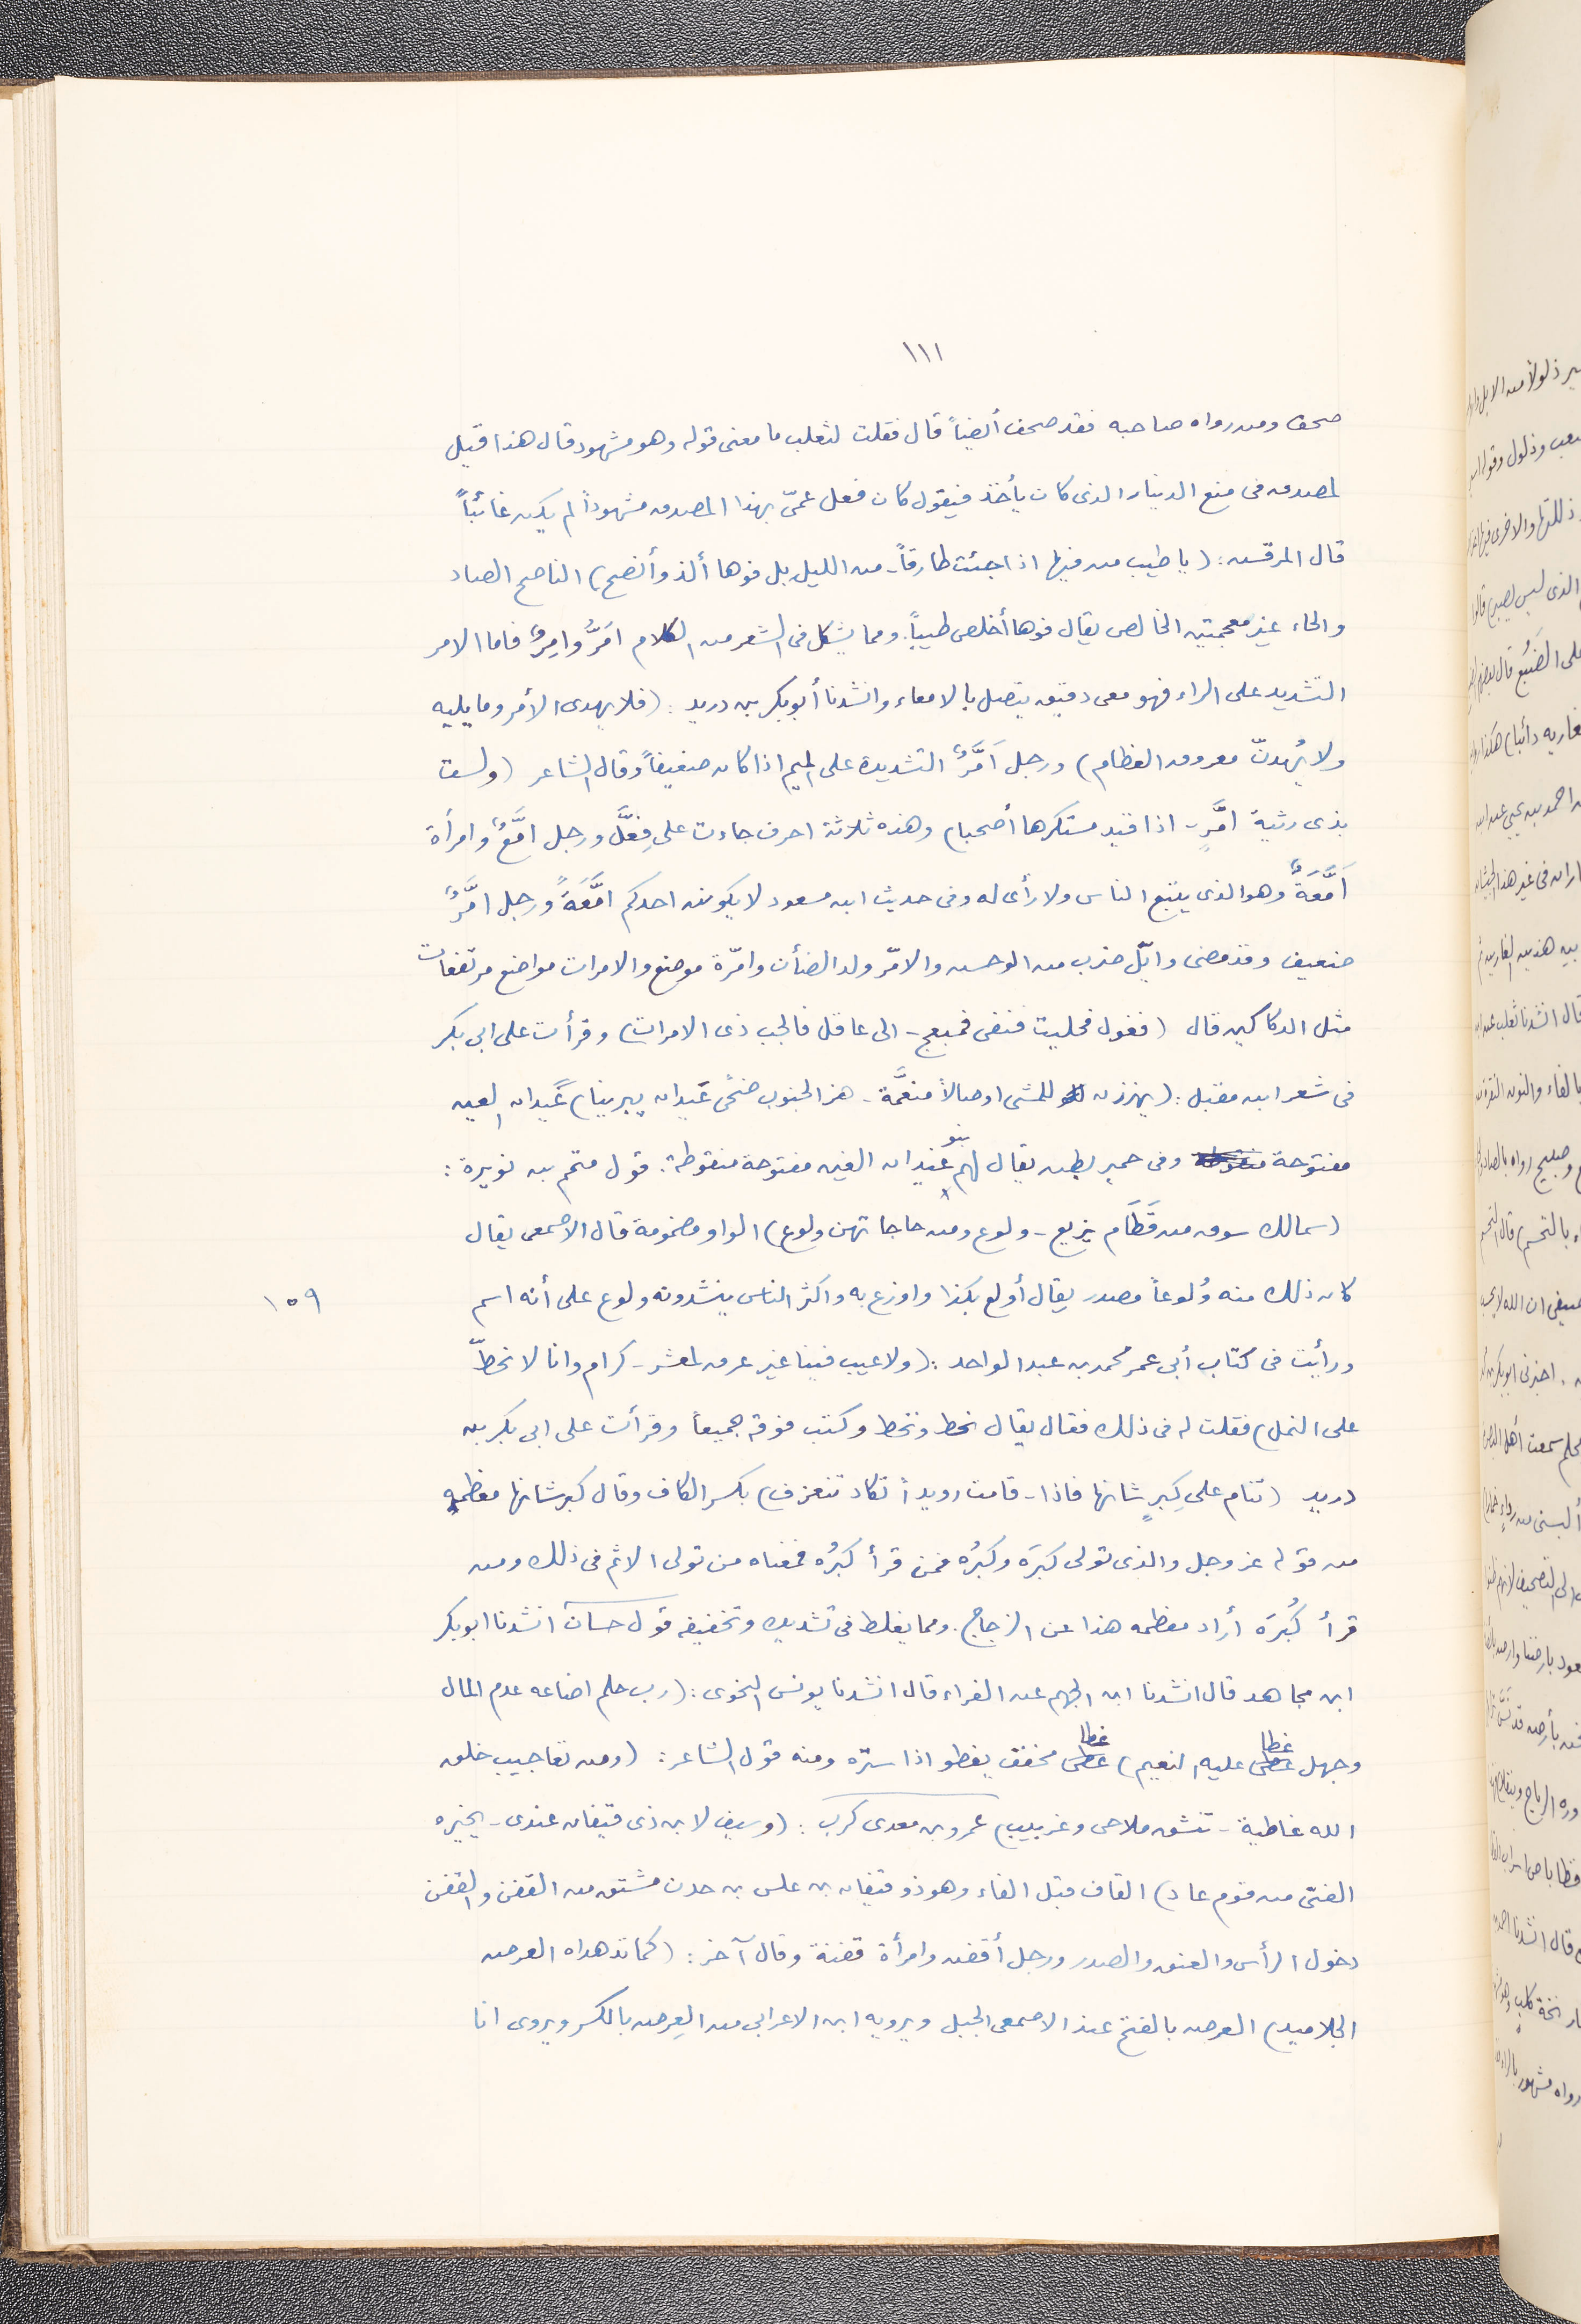 ١١١
صحف ومن رواه صاحبه فقد صحف أيضاً قال فقلت لثعلب ما معنى قوله وهو مشهود قال هذا قيل
لمصدق فى منع الدينار الذى كان يأخذ فيقول كان فعل عمىّ بهذا المصدق مشهوداً لم يكن غائباً
قال المرقش: (يا طيب من فيها اذا جئت طارقاً - من الليل بل فوها ألذ وأنصح) الناصح الصاد
والحاء غير معجمتين الخالص يقال فوها أخلص طيباً. ومما يشكل فى الشعر من الكلام امَرُّ وامِرٌ فاما الامر
التشديد على الراء فهو معى دقيق يتصل بالامعاء وانشدنا أبو بكر بن دريد: (فلا يهدى الأمر وما يليه
ولا يُهدنّ معروق العظام) ورجل اَمَّرٌ التشديدة على الميم اذا كان ضعيفاً وقال الشاعر (ولست
بذى رثية امَّرٍ - اذا قيد مستكرها أصحبا) وهذه ثلاثة احرف جاءت على فِعَّل ورجل امَّعٌ وامرأة
اَمَّعَةٌ وهو الذى يتبع الناس ولا رأى له وفى حديث ابن مسعود لا يكونن احدكم امَّعَةً ورجل امَّرٌ
ضعيف وقد مضى وايّل ضرب من الوحش والامّر ولد الضأن وامّرة موضع والامرات مواضع مرتفعات
مثل الدكاكين قال (فغول فحليت فنفى فمبعج - الى عاقل فالجب ذى الامرات) وقرأت على ابى بكر
فى شعر ابن مقبل: (يهززن للمشى اوصالاً منعَّمة - هز الجنوب ضحًى عَيدان يبرينا) عَيدان العين
مفتوحة منقوطة وفى حمير بطن يقال لهم بنو غيدان الغين مفتوحة منقوطة. قول متمم بن نويرة:
(سمالك سوق من قَطَام يزيع - ولوع ومن حاجاتهن ولوع) الواو مضمومة قال الاصمعى يقال
كان ذلك منه وُلوعاً مصدر يقال أولع بكذا واوزع به واكثر الناس ينشدونه ولوع على أنه اسم
١٥٩
ورأيت فى كتاب أبى عمر محمد بن عبد الواحد: (ولا عيب فينا غير عرق لمعشر - كرام وانا لا نحطّ
على النمل) فقلت له فى ذلك فقال يقال نحط ونخط وكتب فوقه جميعاً وقرأت على ابى بكر بن
دريد (تنام على كِبرٍ شانها فاذا - قامت رويداً تكاد تنغرف) بكسر الكاف وقال كبر شانها معظمه
من قوله عز وجل والذى تولى كبرَه وكبرُه فمن قرأ كبرُه فمعناه من تولى الاثم فى ذلك ومن
قرأ كُبرَه أراد معظمه هذا عن الزجاج. ومما يغلط فى تشديده وتخفيفه قول حسان انشدنا ابو بكر
ابن مجاهد قال انشدنا ابن الجهم عن الفراء قال انشدنا يونس النحوى: (رب حلم اضاعه عدم المال
وجهل غطا عليه النعيم) غطا مخفف يغطو اذا ستره ومنه قول الشاعر: (ومن تعاجيب خلق
الله غاطية - تشق ملاحى وغربيب) عمرو بن معدى كرب: (وسيف لابن ذى قيفان عندى - يخيره
الفتى من قوم عاد) القاف قبل الفاء وهو ذو قيفان بن علس بن حدن مشتق من القفن والقفن
دخول الرأس والعنق والصدر ورجل أقفن وامرأة قفنة وقال آخر: (كما تدهداه العرض
الجلاميد) العرض بالفتح عند الاصمعى الجبل ويرويه ابن الاعرابى من العِرض بالكسر ويروى انا